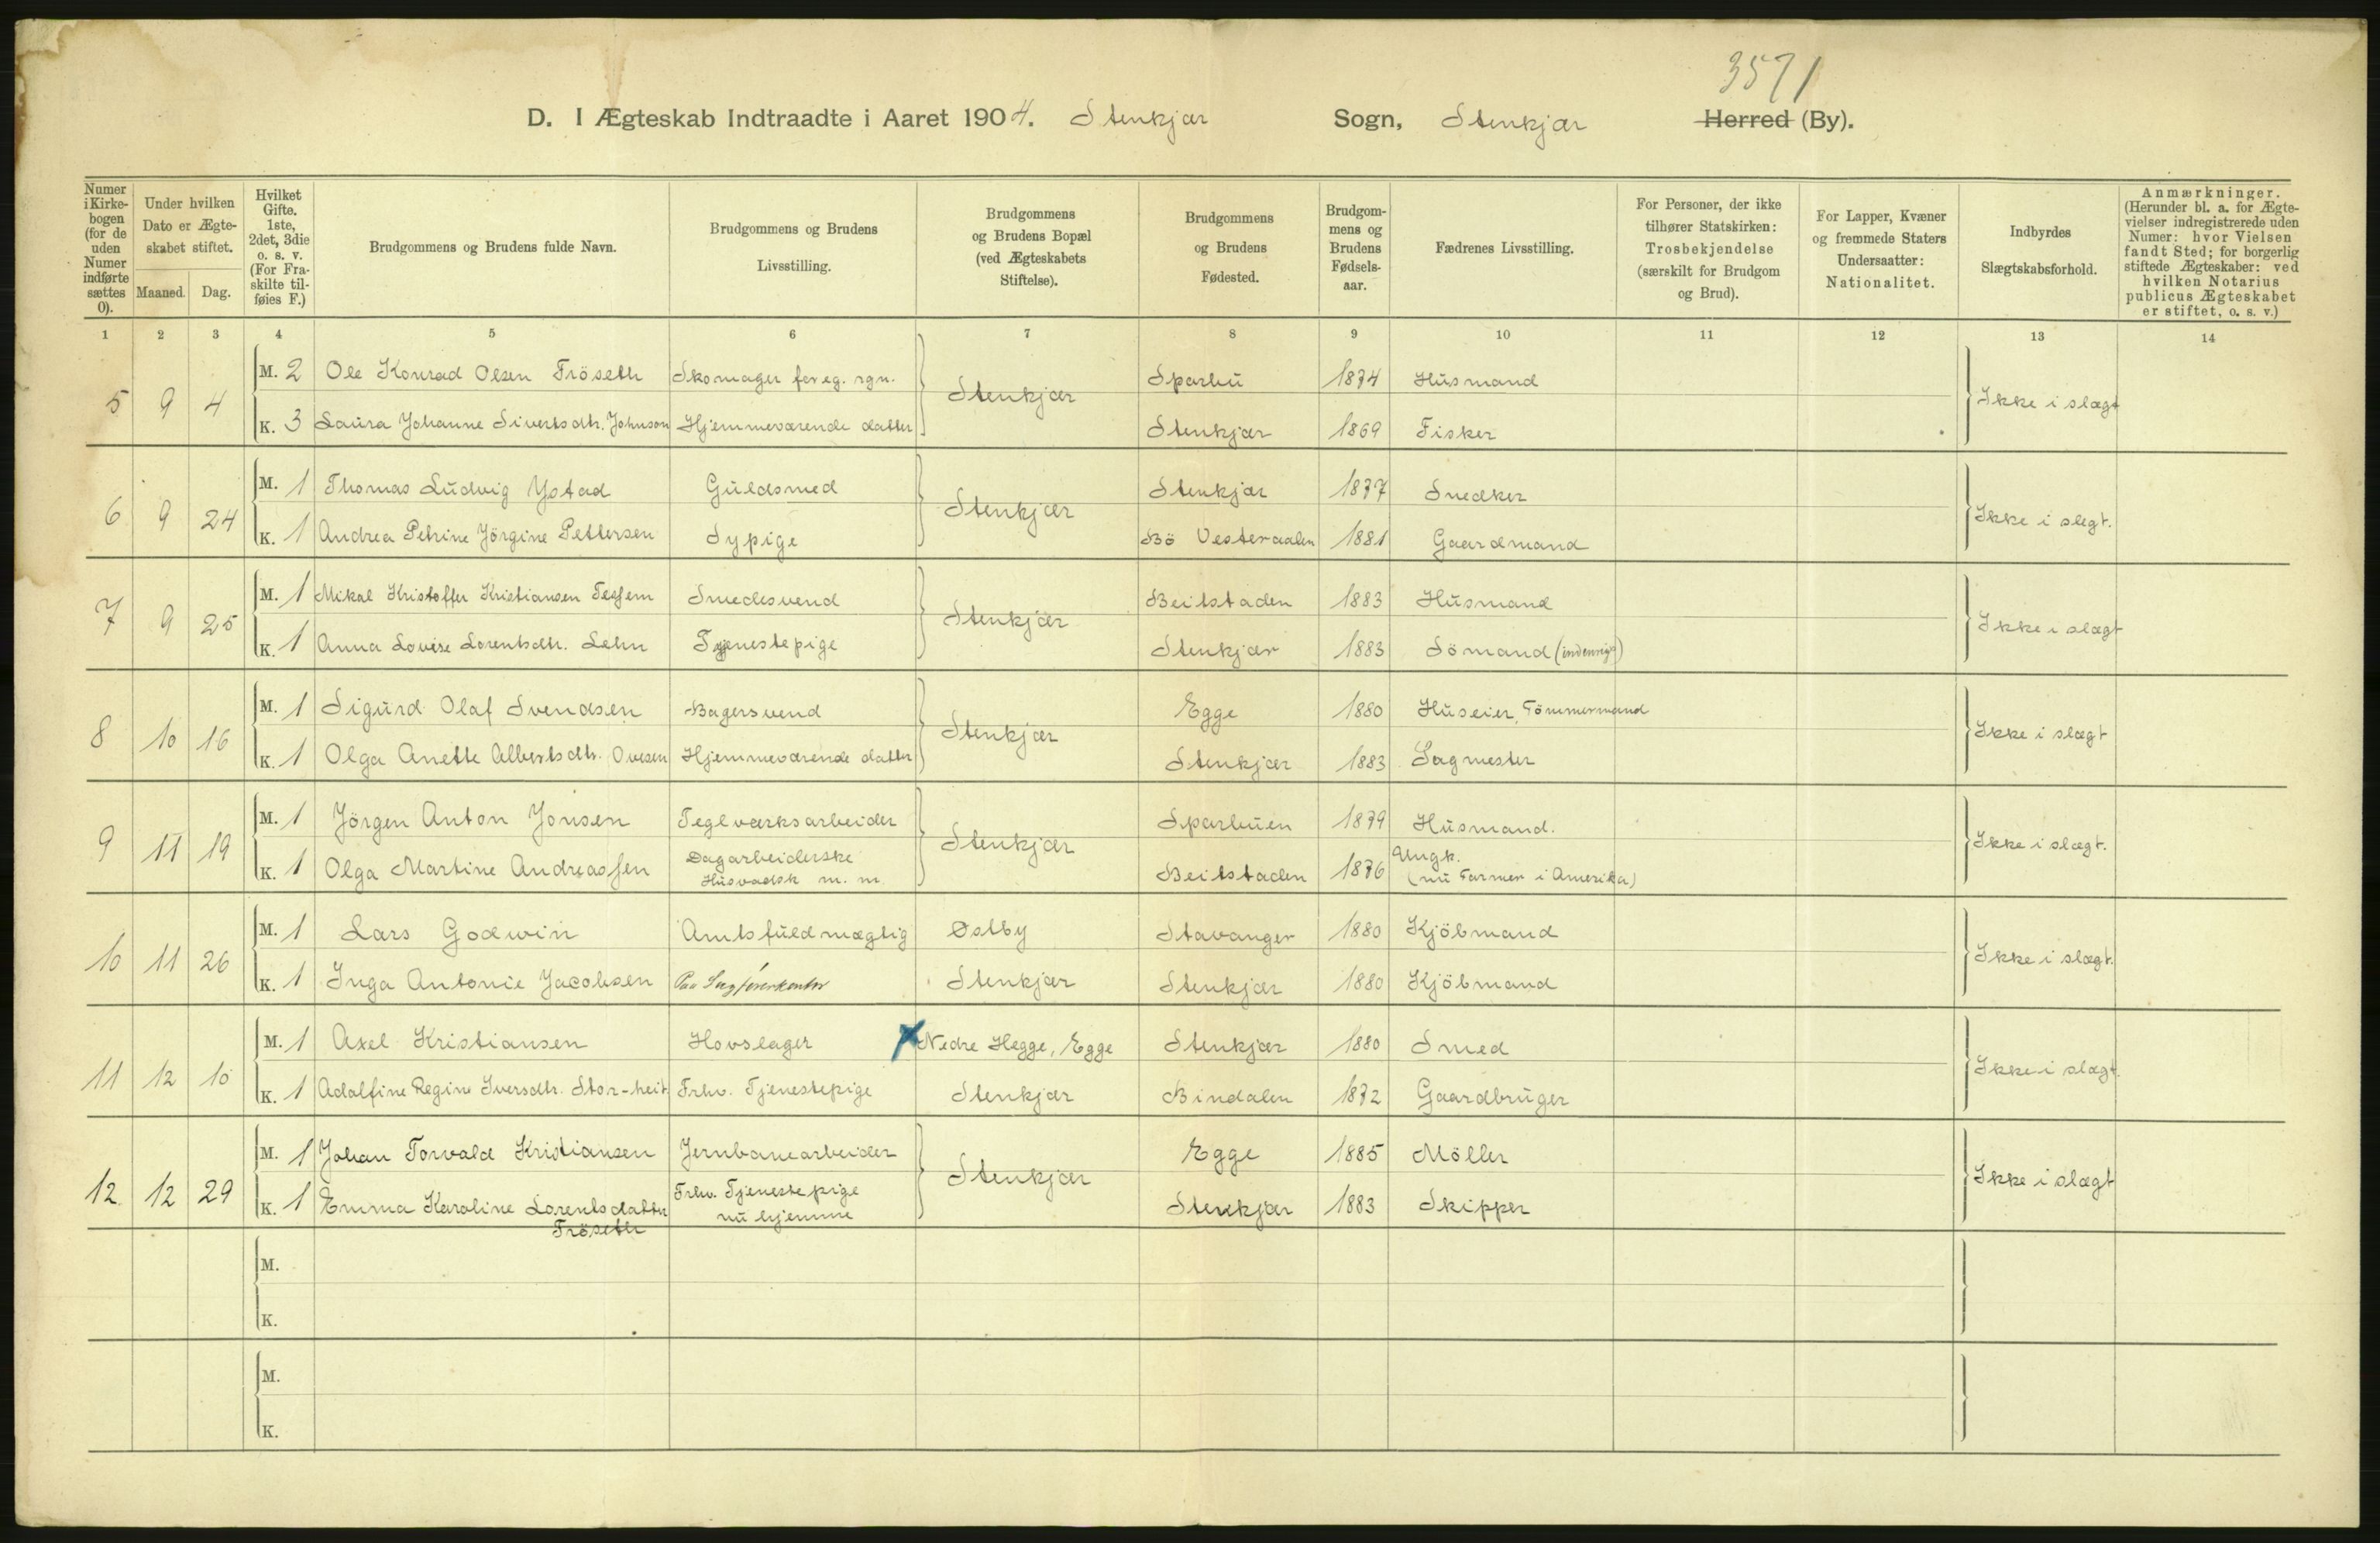 3571
D. I Ægteskab Indtraadte i Aaret 1904. Stenkjær Sogn, Stenkjær Herred (By).
Numer i Kirkebogen (for de uden Numer indførte sættes 0).
Under hvilken Dato er Ægteskabet stiftet.
Maaned. Dag.
Hvilket Gifte. 1ste, 2det, 3die o. s. v. (For Fraskilte tilføies F.)
Brudgommens og Brudens fulde Navn.
Brudgommens og Brudens Livsstilling.
Brudgommens og Brudens Bopæl (ved Ægteskabets Stiftelse).
Brudgommens og Brudens Fødested.
Brudgommens og Brudens Fødselsaar.
Fædrenes Livsstilling.
For Personer, der ikke tilhører Statskirken: Trosbekjendelse (særskilt for Brudgom og Brud).
For Lapper, Kvæner og fremmede Staters Undersaatter: Nationalitet.
Indbyrdes Slægtskabsforhold.
Anmærkninger. (Herunder bl. a. for Ægtevielser indregistrerede uden Numer: hvor Vielsen fandt Sted; for borgerlig stiftede Ægteskaber: ved hvilken Notarius publicus Ægteskabet er stiftet, o. s. v.)
1 2 3 4 5 6 7 8 9 10 11 12 13 14
M. 2 Ole Konrad Olsen Fröseth Skomager for eg. rgn. Sparbu 1874 Husmand
5 9 4 Stenkjær Ikke i slægt
K. 3 Laura Johanne Sivertsdtr. Johnson Hjemmeværende datter Stenkjær 1869 Fisker
M. 1 Thomas Ludvig Ystad Guldsmed Stenkjær 1877 Snedker
6 9 24 Stenkjær Ikke i slegt.
K. 1 Andrea Petrine Jörgine Pettersen Sypige Bö Vesteraalen 1881 Gaardmand
M. 1 Mikal Kristoffer Kristiansen Tessem Smedesvend Beitstaden 1883 Husmand
7 9 25 Stenkjær Ikke i slægt
K. 1 Anna Lovise Lorentsdtr. Lehn Tjenestepige Stenkjær 1883 Sömand (indenrigs)
M. 1 Sigurd Olaf Svendsen Bagersvend Egge 1880 Huseier, Tömmermand
8 10 16 Stenkjær Ikke i slægt
K. 1 Olga Anette Albertsdtr. Ovesen Hjemmeværende datter Stenkjær 1883 Sagmester
M. 1 Jörgen Anton Jonsen Teglværksarbeider Sparbuen 1879 Husmand.
9 11 19 Stenkjær Ikke i slægt.
K. 1 Olga Martine Andreassen Dagarbeiderske Beitstaden 1876 Ungk.
Husvadsk m. m. (nu Farmer i Amerika)
M. 1 Lars Godwin Amtsfuldmægtig Østby Stavanger 1880 Kjöbmand
10 11 26 Ikke i slægt.
K. 1 Inga Antonie Jacobsen Paa Sagförerkontor Stenkjær Stenkjær 1880 Kjöbmand
M. 1 Axel Kristiansen Hovslager x Nedre Hegge, Egge Stenkjær 1880 Smed
11 12 10 Ikke i slægt.
K. 1 Adalfine Regine Iversdtr. Stor-heit Frhv. Tjenestepige Stenkjær Bindalen 1872 Gaardbruger
M. 1 Johan Torvald Kristiansen Jernbanearbeider Egge 1885 Möller
12 12 29 Stenkjær Ikke i slægt
K. 1 Emma Karoline Lorentsdatter Frhv. Tjenestepige Stenkjær 1883 Skipper
Fröseth nu hjemme
M.
K.
M.
K.